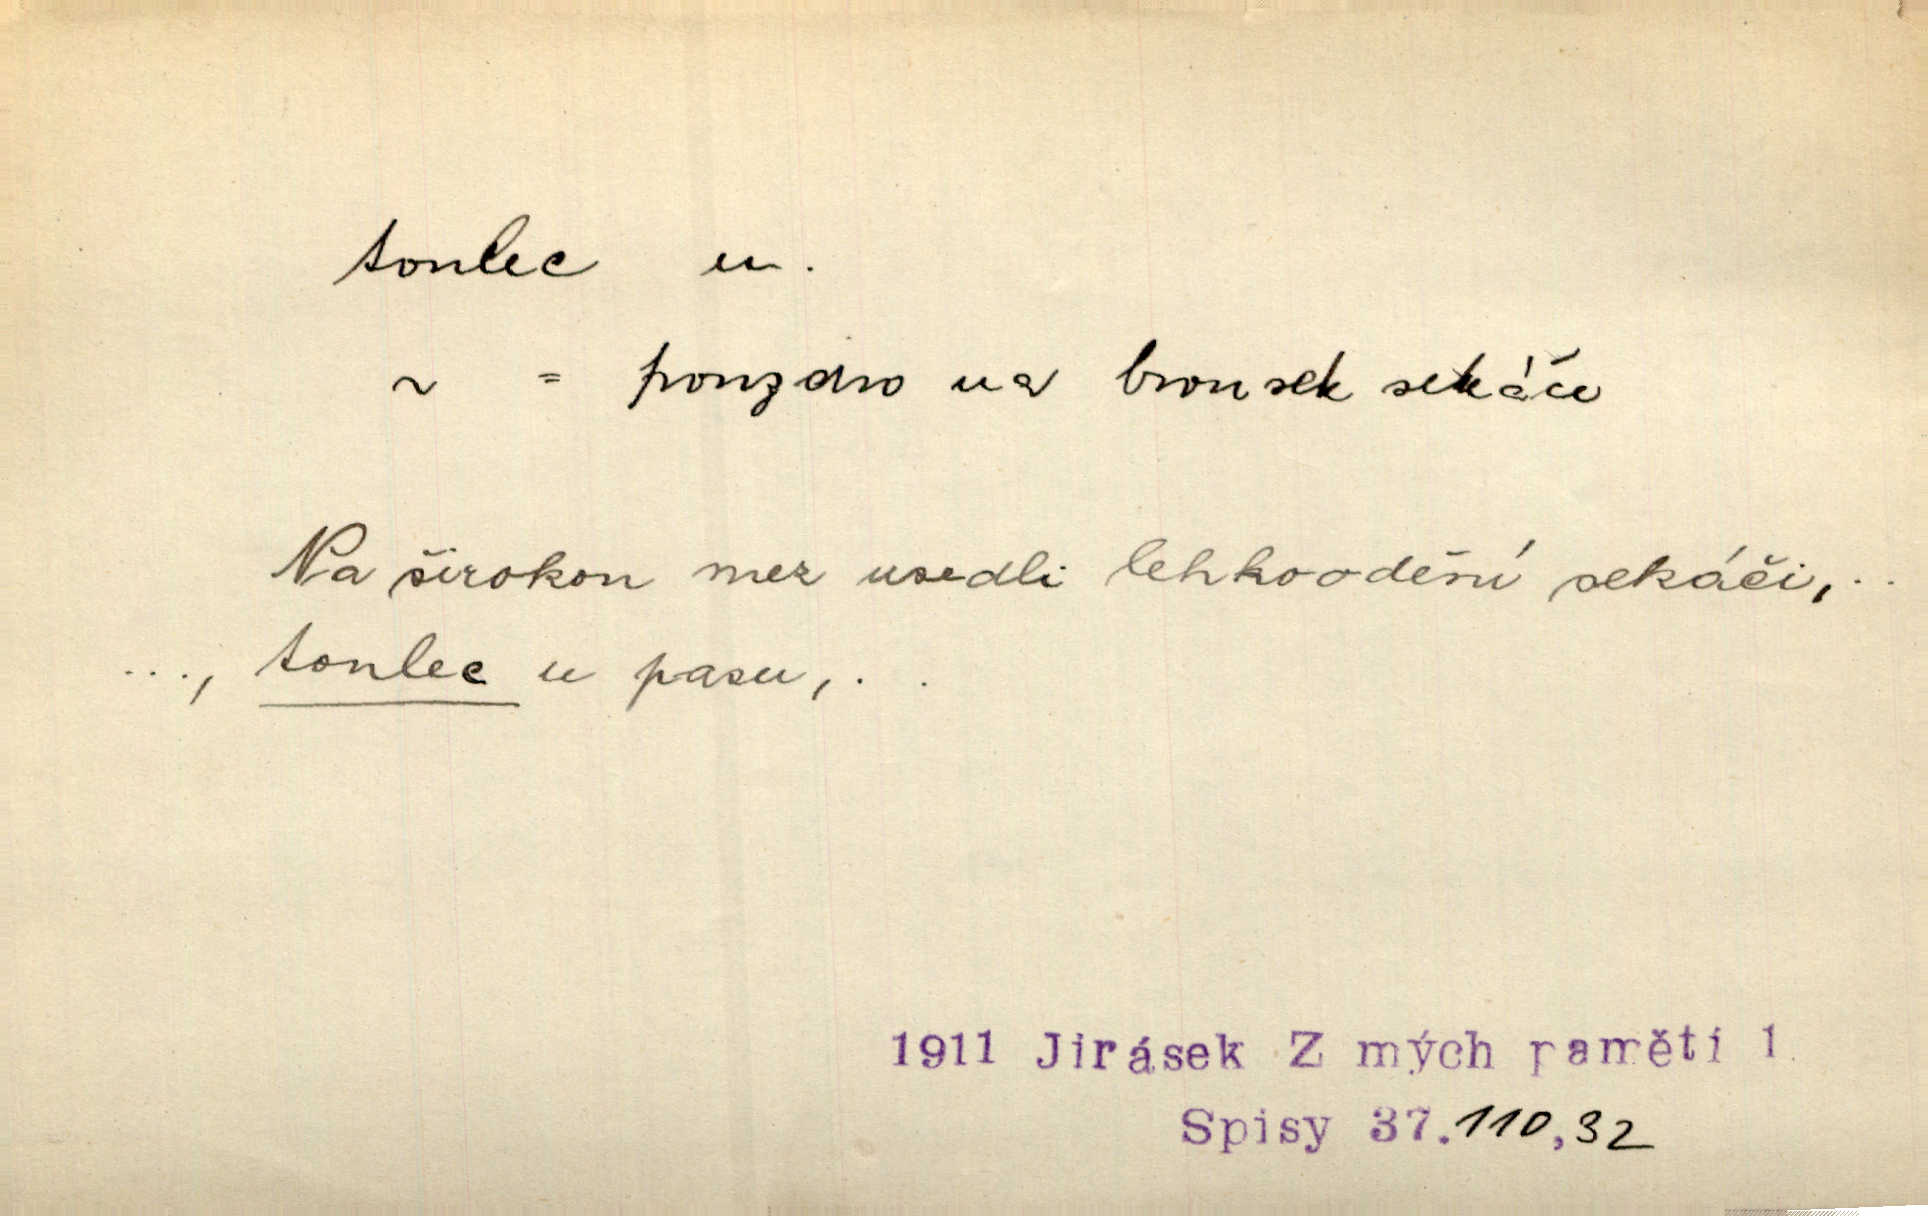 toulec m.
~ = pouzdro na brousek sekáče
Na širokou mez usedli lehkoodění sekáči, ..
..., toulec u pasu, . .
1911 Jirásek Z mých pamětí 1
Spisy 37.110,32